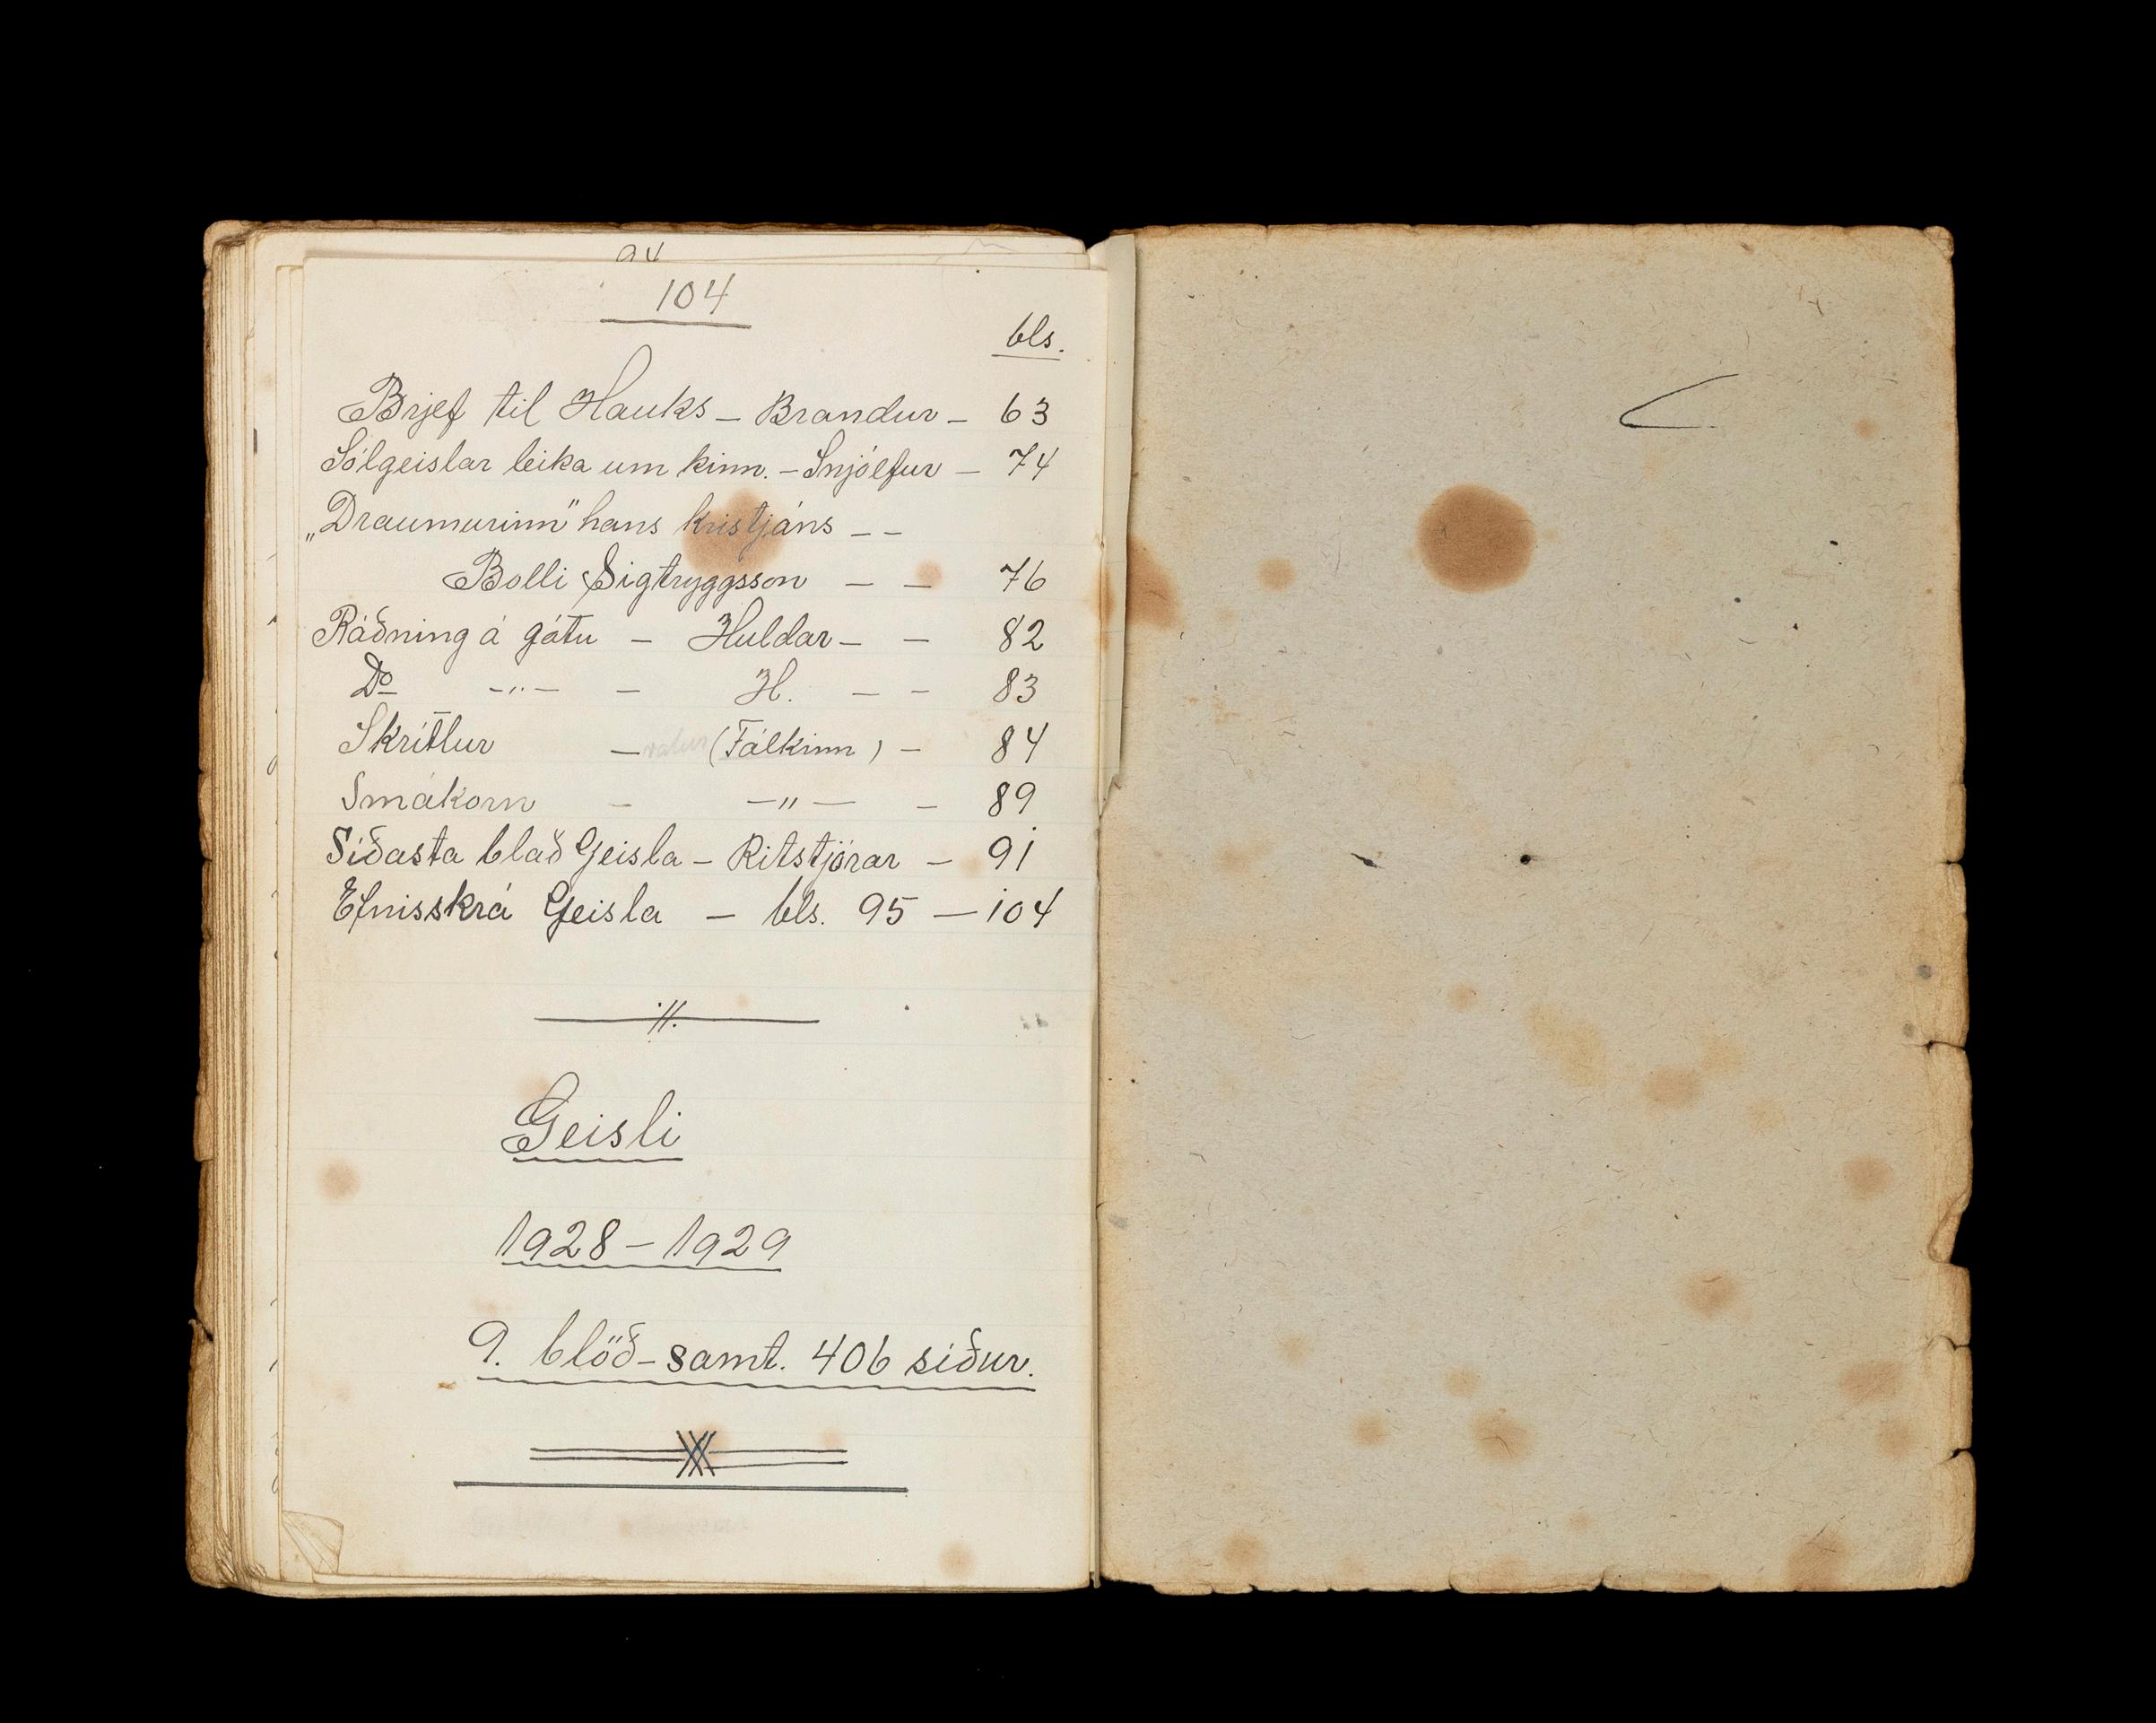 94
104
bls.
Brjef til Hauks – Brandur – 63
Sólgeislar leika um kinn. – Snjólfur – 74
„Draumurinn" hans Kristjáns – –
Bolli Sigtryggsson – – 76
Ráðning á gátu – Huldar – – 82
Do –"– – H. – – 83
Skrítlur – valur (Fálkinn) – 84
Smákorn – –"– – 89
Síðasta blað Geisla – Ritstjórar – 91
Efnisskrá Geisla – bls. 95 – 104
Geisli
1928 – 1929
9. blöð – samt. 406 síður.